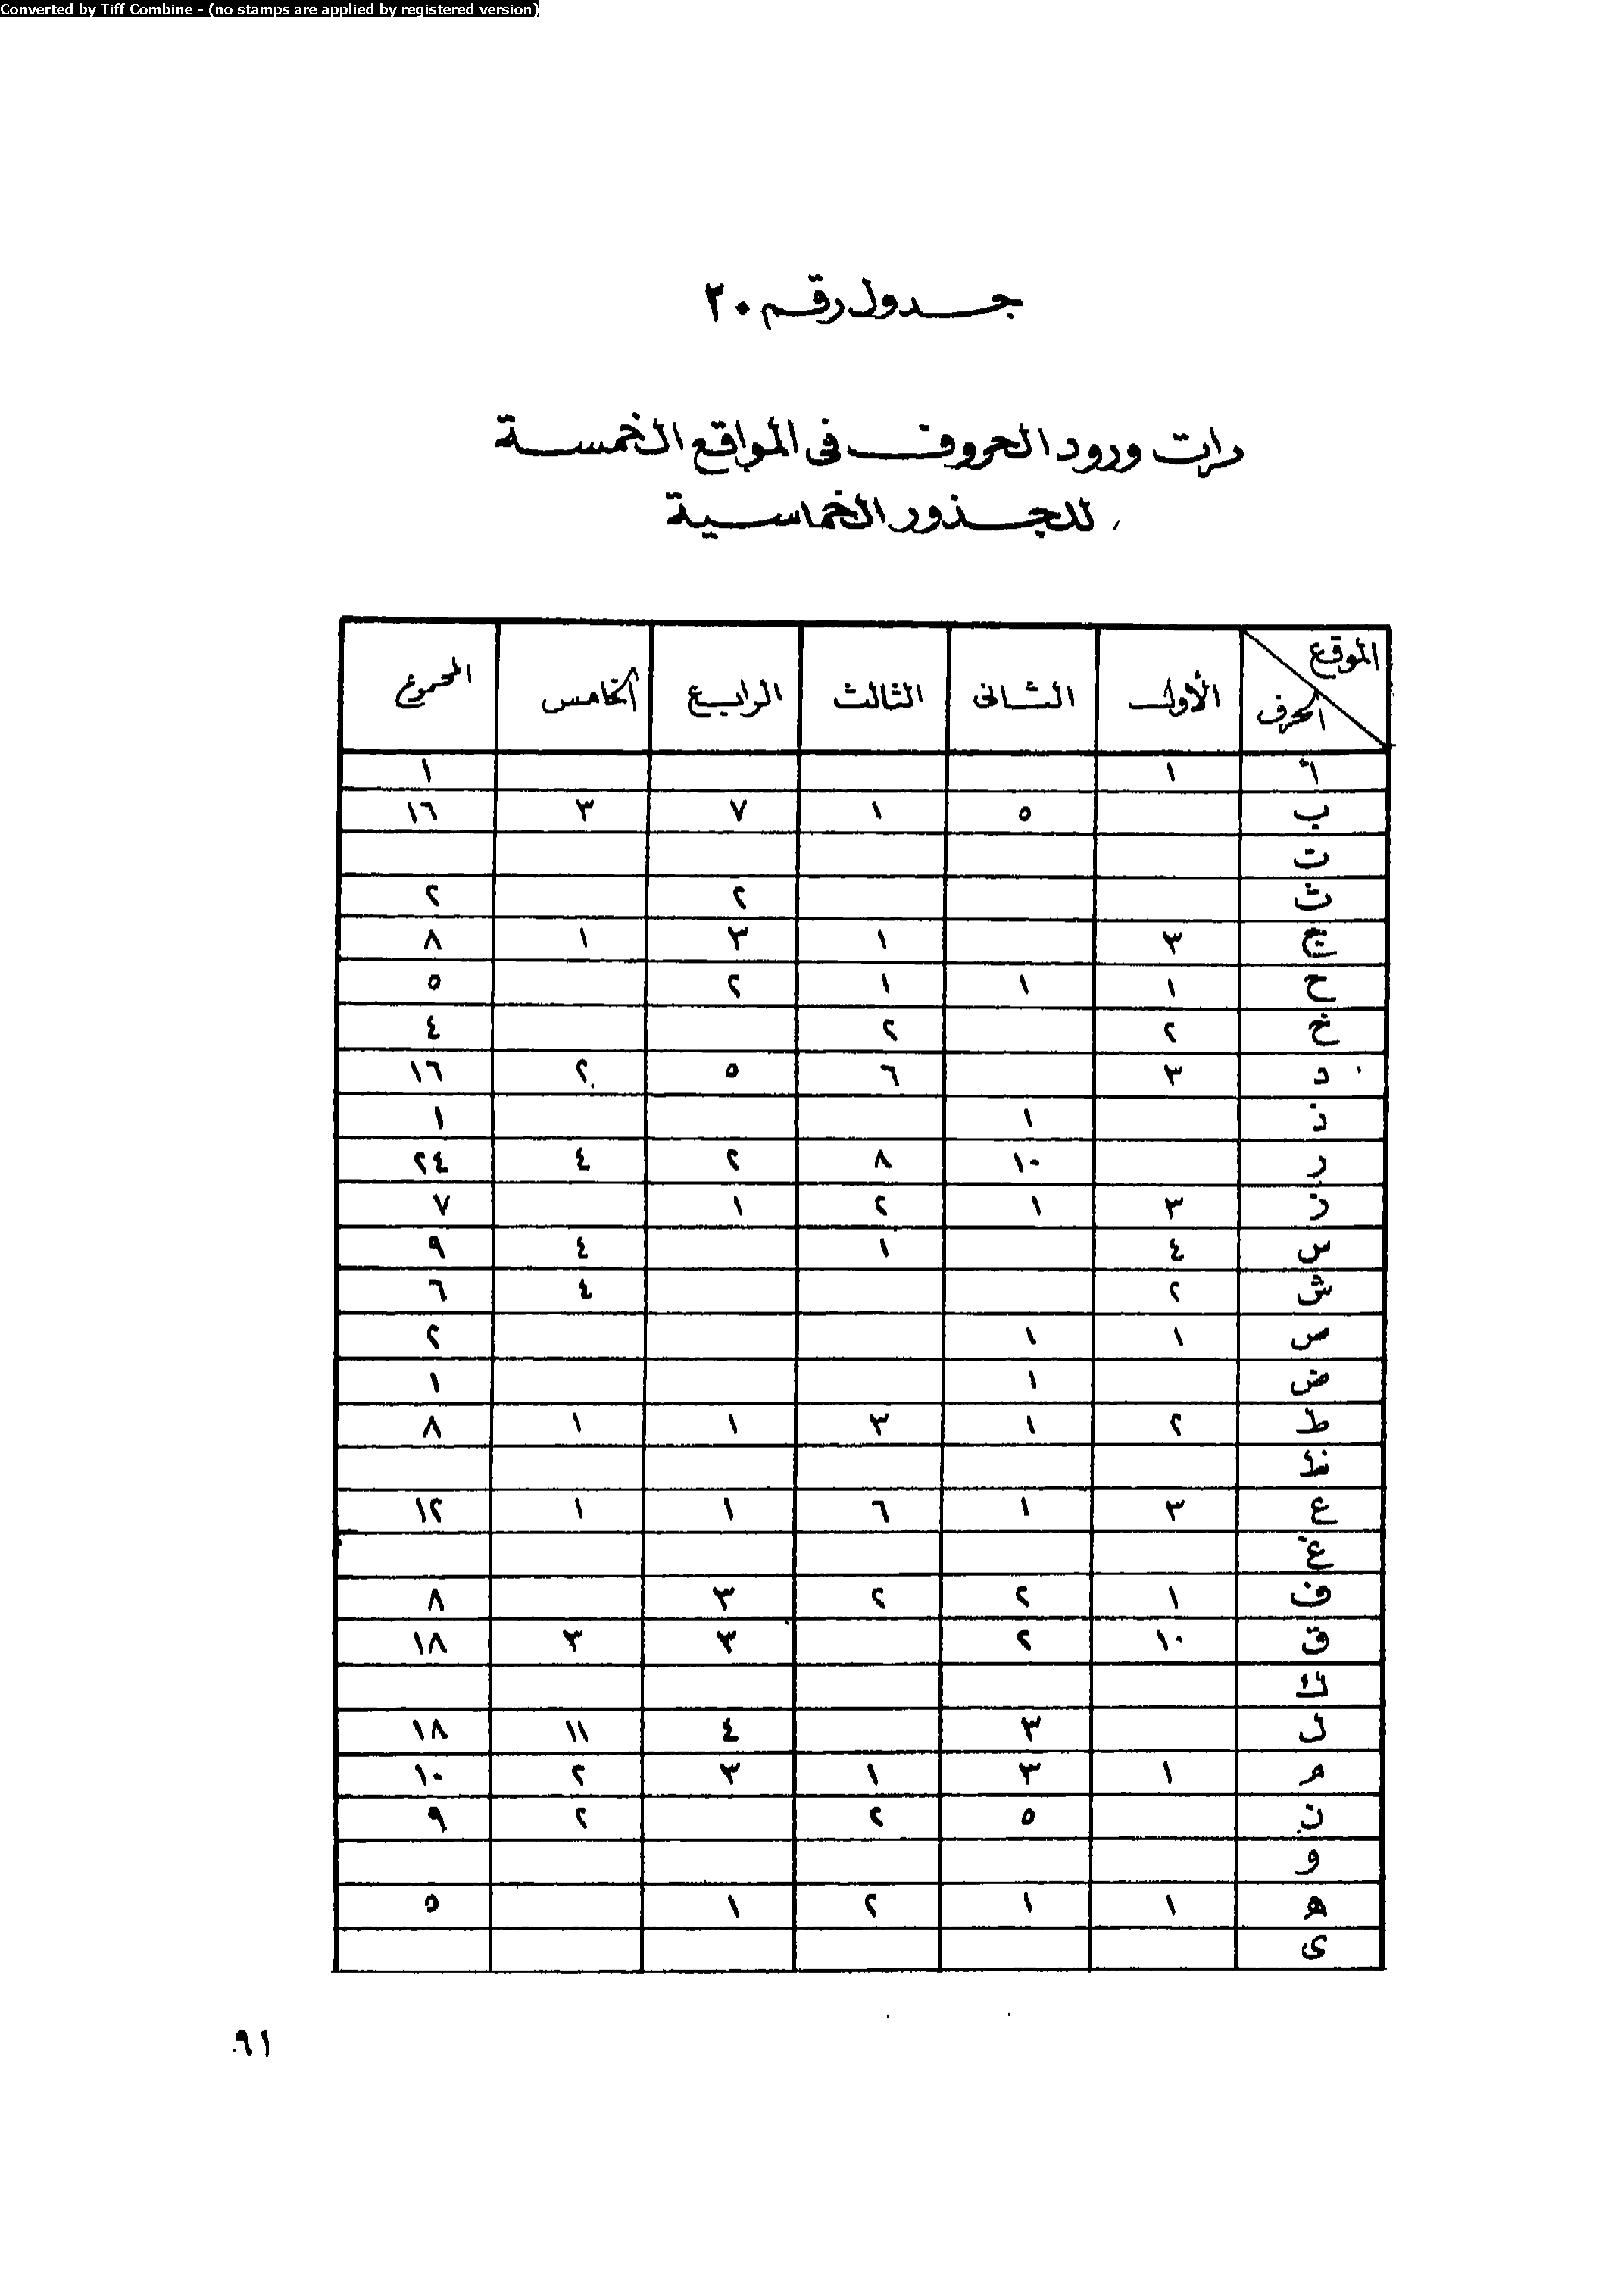 Converted by Tiff Combine - (no stamps are applied by registered version)
جدول رقم ٢٠
رات ورود الحروف فى المواقع الخمسة
للجذور الخماسية
الموقع الحرف الأول الثانى الثالث الرابع الخامس المجموع
أ ١ ١
ب ٥ ١ ٧ ٣ ١٦
ت
ث ٢ ٢
ج ٣ ١ ٣ ١ ٨
ح ١ ١ ١ ٢ ٥
خ ٢ ٢ ٤
د ٣ ٦ ٥ ٢ ١٦
ذ ١ ١
ر ١٠ ٨ ٢ ٤ ٢٤
ز ٣ ١ ٢ ١ ٧
س ٤ ١ ٤ ٩
ش ٢ ٤ ٦
ص ١ ١ ٢
ض ١ ١
ط ٢ ١ ٣ ١ ١ ٨
ظ
ع ٣ ١ ٦ ١ ١ ١٢
غ
ف ١ ٢ ٢ ٣ ٨
ق ١٠ ٢ ٣ ٣ ١٨
ك
ل ٣ ٤ ١١ ١٨
م ١ ٣ ١ ٣ ٢ ١٠
ن ٥ ٢ ٢ ٩
و
ه ١ ١ ٢ ١ ٥
ى
٩١